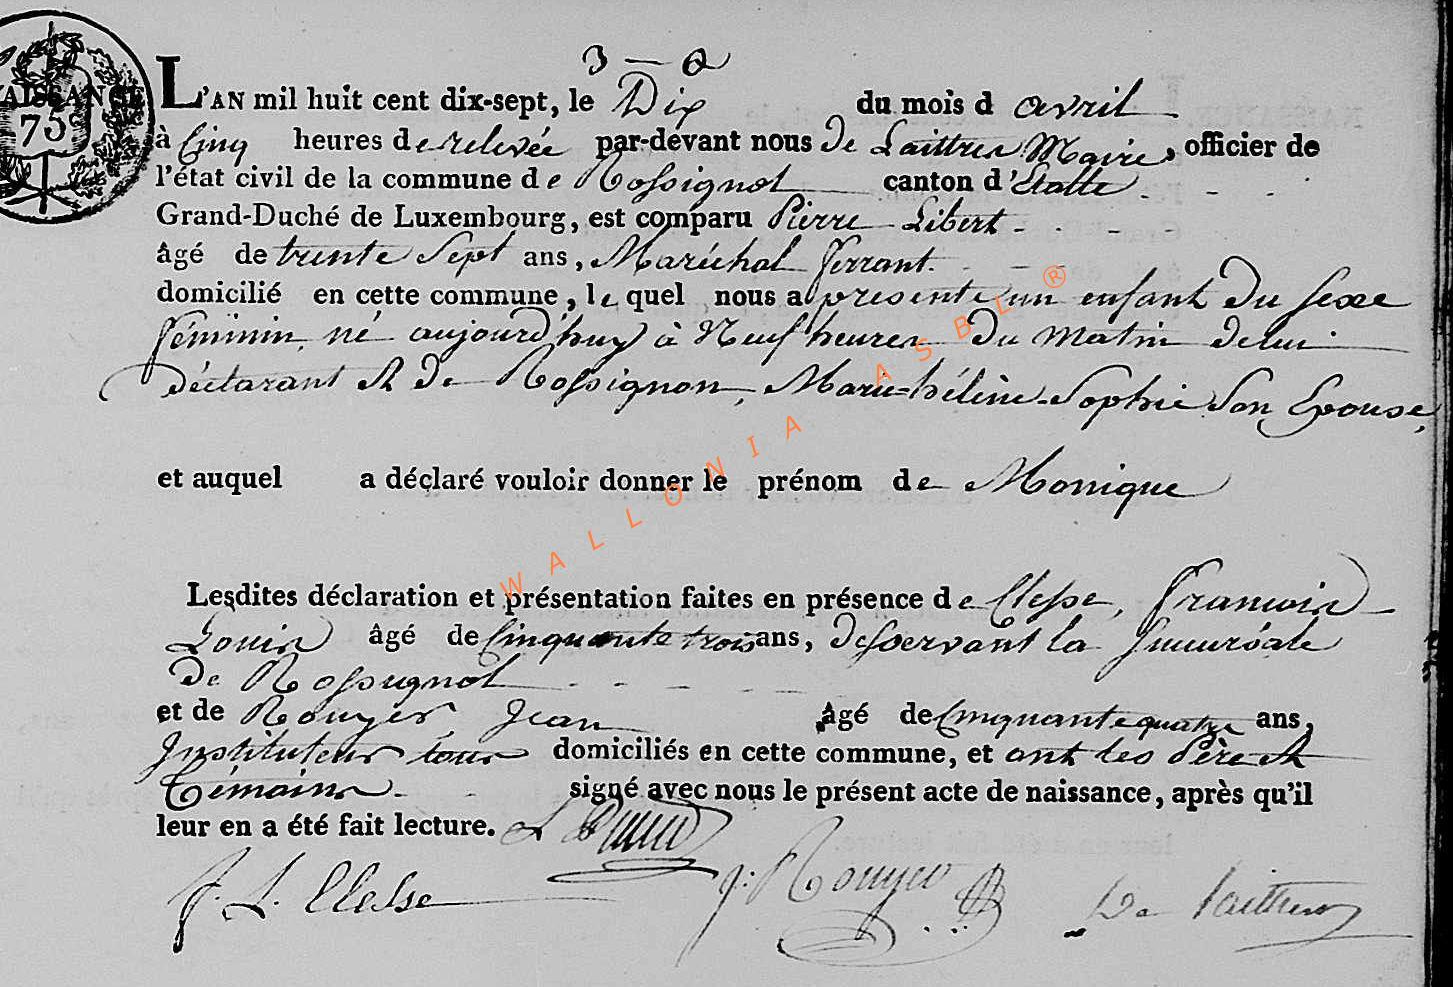 3 – a
NAISSANCE
75c
L'AN mil huit cent dix-sept, le Dix du mois d avril
à Cinq heures de relevée par-devant nous De Laittres Maire, officier de
l'état civil de la commune de Rossignol canton d'Etalle
Grand-Duché de Luxembourg, est comparu Pierre Libert
âgé de trente Sept ans, Maréchal ferrant
domicilié en cette commune, le quel nous a présenté un enfant du sexe
féminin, né aujourd'huy à Neuf heures du matin de lui
déclarant et de Rossignon, Marie-hélène-Sophie Son Epouse,
et auquel a déclaré vouloir donner le prénom de Monique
Lesdites déclaration et présentation faites en présence de Clesse, François
Louis âgé de Cinquante trois ans, desservant la succursale
de Rossignol
et de Rouyer Jean âgé de Cinquante quatre ans,
Instituteur tous domiciliés en cette commune, et ont les Père et
Témoins signé avec nous le présent acte de naissance, après qu'il
leur en a été fait lecture.
F. L. Clesse J: Rouyer De Laittres
WALLONIA ASBL ®